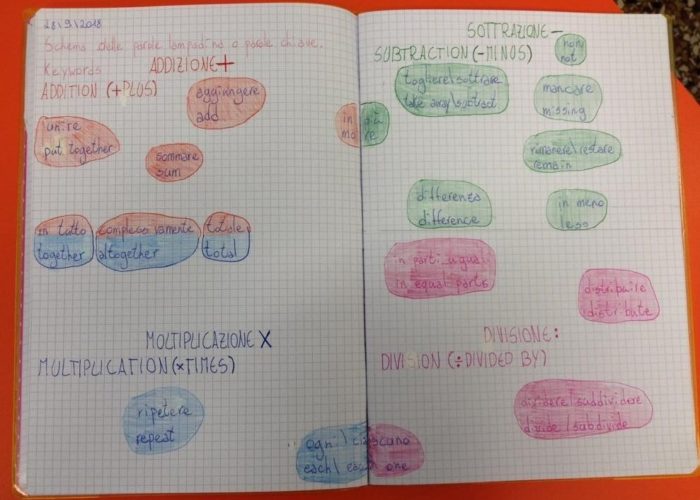 28/9/2018
Schema delle parole lampadina o parole chiave.
Keywords
ADDIZIONE+
ADDITION (+PLUS)
aggiungere
add
unire
put together
sommare
sum
in tutto
together
complessivamente
altogether
totale
total
MOLTIPLICAZIONE X
MULTIPLICATION (×TIMES)
ripetere
repeat
SOTTRAZIONE -
SUBTRACTION (-MINUS)
non
not
togliere/sottrarre
take away/subtract
mancare
missing
in più
more
rimanere/restare
remain
differenza
difference
in meno
less
in parti uguali
in equal parts
distribuire
distribute
DIVISIONE :
DIVISION (÷DIVIDED BY)
dividere/suddividere
divide/subdivide
ogni/ciascuno
each/each one